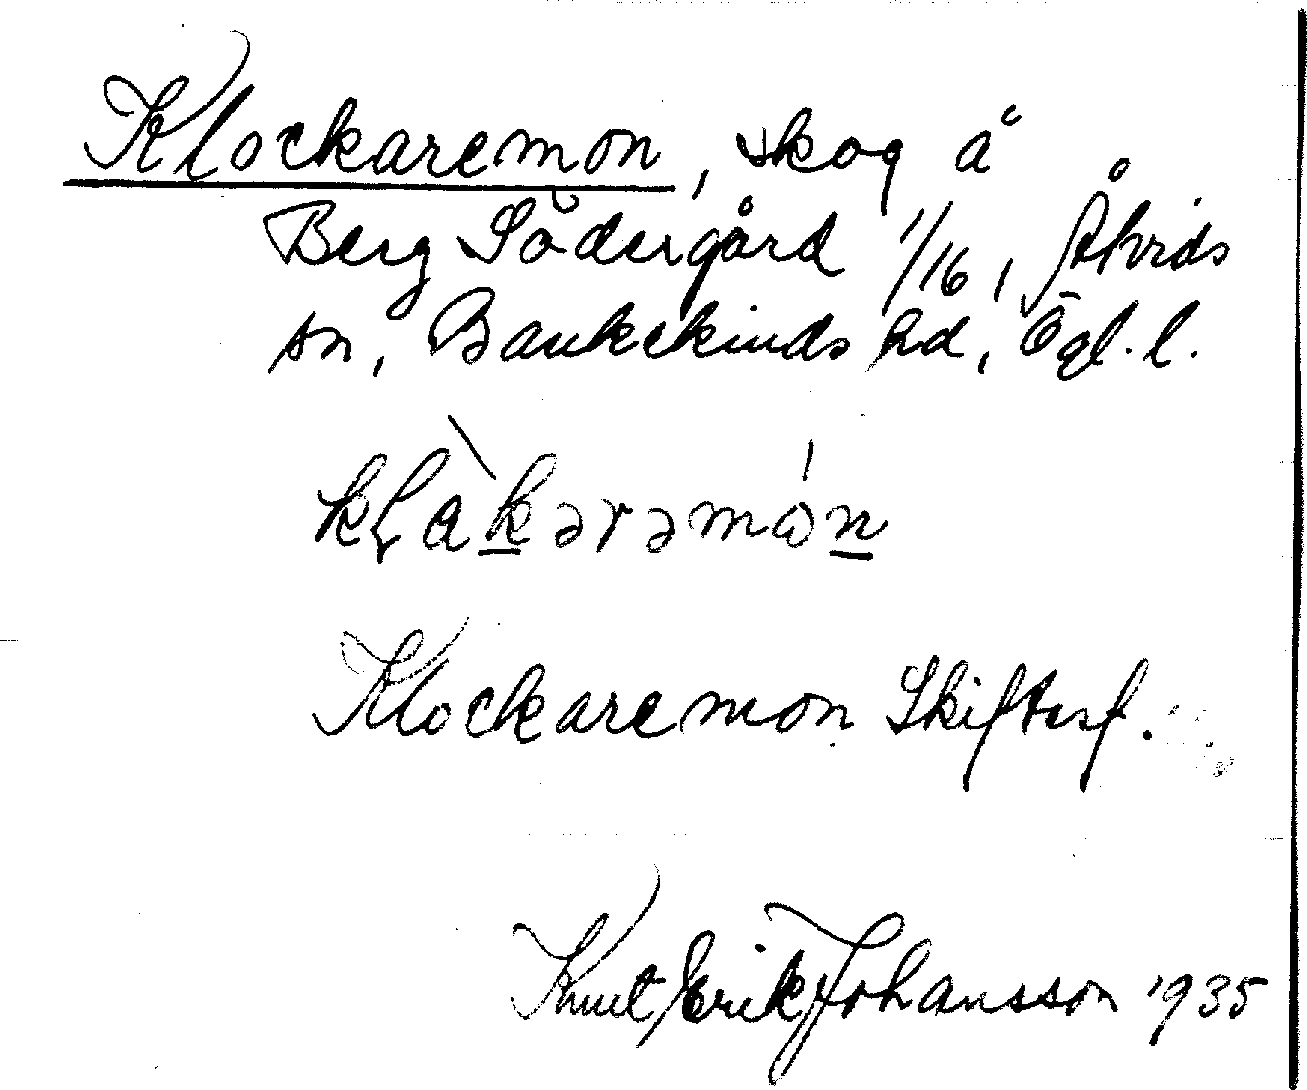 Klockaremon, skog å
Berg Södergård 1/16, Åtvids
sn, Bankekinds hd, Ögl. l.
kɭàkərəmón
Klockaremon Skiftesf.
Knut Erik Johansson 1935